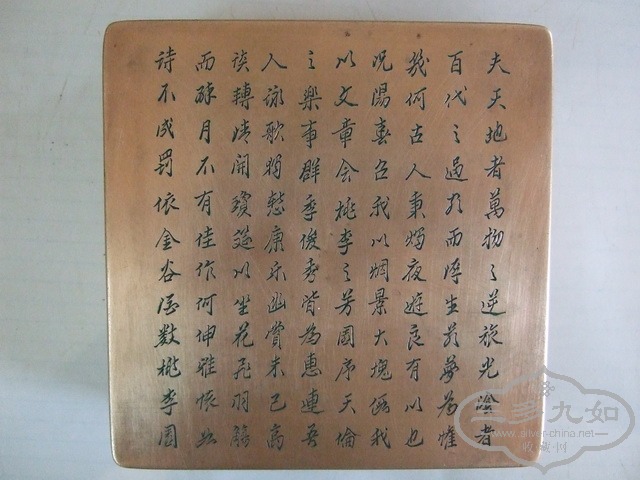 夫天地者萬物之逆旅光陰者
百代之過客而浮生若夢為懽
幾何古人秉燭夜遊良有以也
况陽春召我以烟景大塊假我
以文章会桃李之芳園序天倫
之樂事群季俊秀皆為惠連吾
人詠歌獨慙康乐幽賞未已高
谈轉清開瓊筵以坐花飛羽觴
而醉月不有佳作何伸雅懷如
詩不成罰依金谷酒數桃李園
三多九如
www.silver-china.net
收藏网